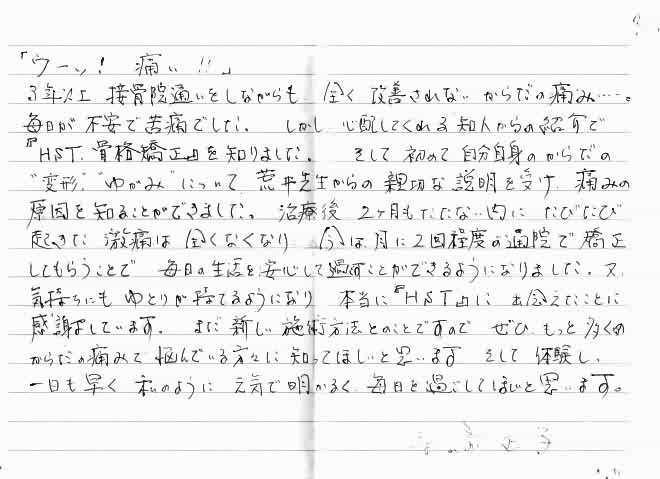 「ウーッ! 痛い!!」
3年以上 接骨院通いをしながらも、全く 改善されない からだの痛み……。
毎日が 不安で苦痛でした。 しかし 心配してくれる 知人からの紹介で
『HST 骨格矯正』を知りました。 そして 初めて 自分自身のからだの
"変形" "ゆがみ"について 荒平先生からの 親切な説明を受け、痛みの
原因を知ることができました。 治療後 2ヶ月もたたない内に たびたび
起きた 激痛は 全くなくなり 今は月に2回程度の通院で矯正
してもらうことで 毎日の生活を安心して過すことができるようになりました。又、
気持ちにも ゆとりが持てるようになり 本当に『HST』に 出会えたことに
感謝しています。 まだ 新しい 施術方法とのことですので ぜひ もっと 多くの
からだの痛みで 悩んでいる方々に 知ってほしいと思います そして 体験し、
一日も早く 私のように 元気で明かるく 毎日を過ごしてほしいと思います。